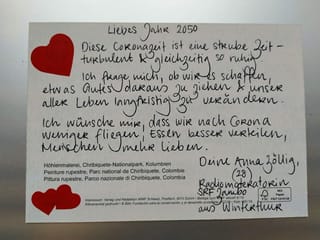 Liebes Jahr 2050
Diese Coronazeit ist eine strube Zeit –
turbulent & gleichzeitig so ruhig
Ich frage mich, ob wir es schaffen,
etwas Gutes daraus zu ziehen & unser
aller Leben langfristig zu verändern.
Ich wünsche mir, dass wir nach Corona
weniger fliegen, Essen besser verteilen,
Menschen mehr lieben.
Höhlenmalerei, Chiribiquete-Nationalpark, Kolumbien
Peinture rupestre, Parc national de Chiribiquete, Colombie
Pittura rupestre, Parco nazionale di Chiribiquete, Colombia
Deine Anna Zöllig,
(28)
Radiomoderatorin
SRF
aus Winterthur